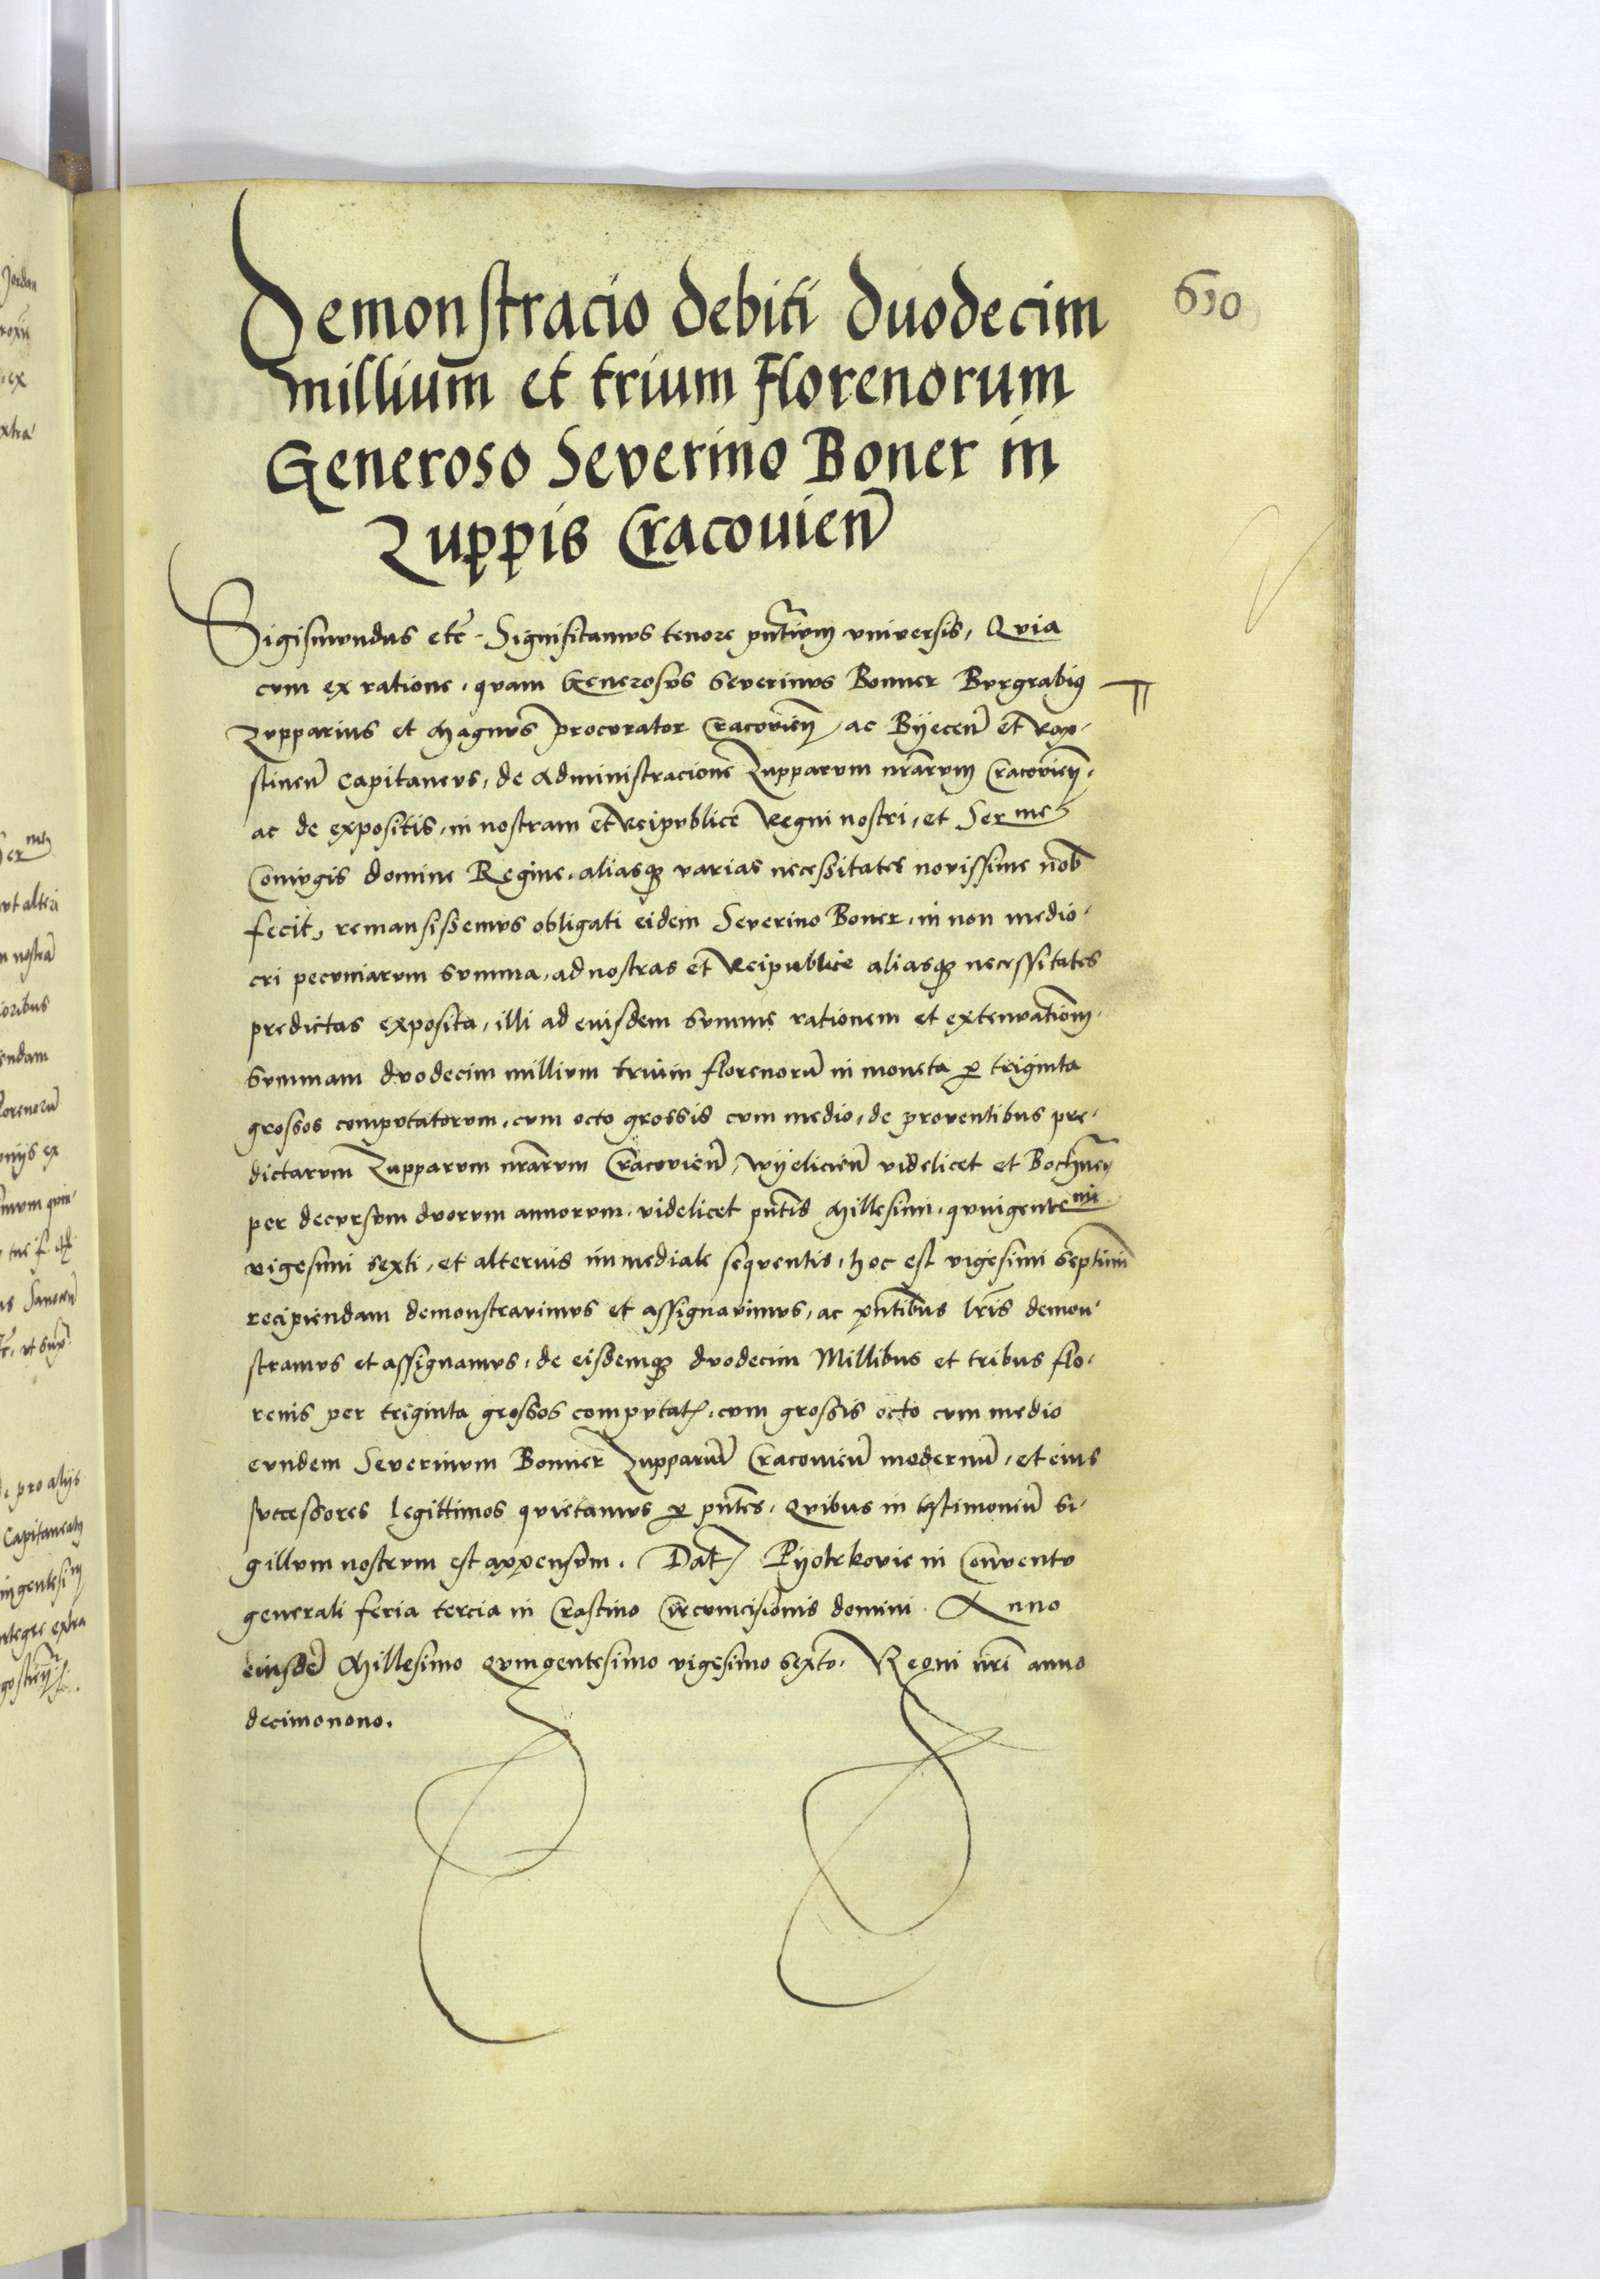 630
Demonstracio debiti duodecim
millium et trium Florenorum
Generoso Severino Boner in
Zuppis Cracovien̄
Sigismundus etc̄. Significamus tenore pn̄tium vniversis, Qvia
cvm ex ratione, qvam Generosvs Severinvs Bonner Bvrgrabiꝰ
Zvpparius et Magnvs procvrator Cracovien̄, ac Byecen̄ et Rap-
stinen̄ Capitanevs, de Administracione Zupparvm nr̄arvm Cracovien̄,
ac de expositis, in nostram et Reipvblice Regni nostri, et Ser me
Conivgis domine Regine, aliasqꝫ varias necessitates novissime nob̄
fecit, remansissemvs obligati eidem Severino Boner, in non medio-
cri pecvniarvm svmma, ad nostras et Reipublice aliasqꝫ necessitates
predictas exposita, illi ad eiusdem svmme rationem et extenvation̄em,
svmmam dvodecim millivm trium florenorū in moneta ꝑ triginta
grossos compvtatorvm, cvm octo grossis cvm medio, de proventibus pre-
dictarvm Zupparvm nr̄arvm Cracovien̄, Wyelicien̄ videlicet et Bochnen̄
per decvrsvm dvorvm annorvm, videlicet pn̄tis Millesimi, qvingentemi
vigesimi sexti, et alterius immediate seqventis, hoc est vigesimi septimi
recipiendam demonstravimvs et assignavimvs, ac pn̄tibus lr̄is demon-
stramvs et assignamvs, de eisdemqꝫ dvodecim Millibus et tribus flo-
renis per triginta grossos compvtatꝭ, cvm grossis octo cvm medio
evndem Severinvm Bonner Zupparivm̄ Cracovien̄ modernū, et eius
svccessores legittimos qvietamvs ꝑ pn̄tes. Qvibus in testimoniū si-
gillvm nostrvm est appensvm. Datꝭ Pyotrkovie in Conventv
generali feria tercia in Crastino Circvmcisionis domini. Anno
eiusdē Millesimo Qvingentesimo vigesimo sexto. Regni nr̄i anno
decimonono.